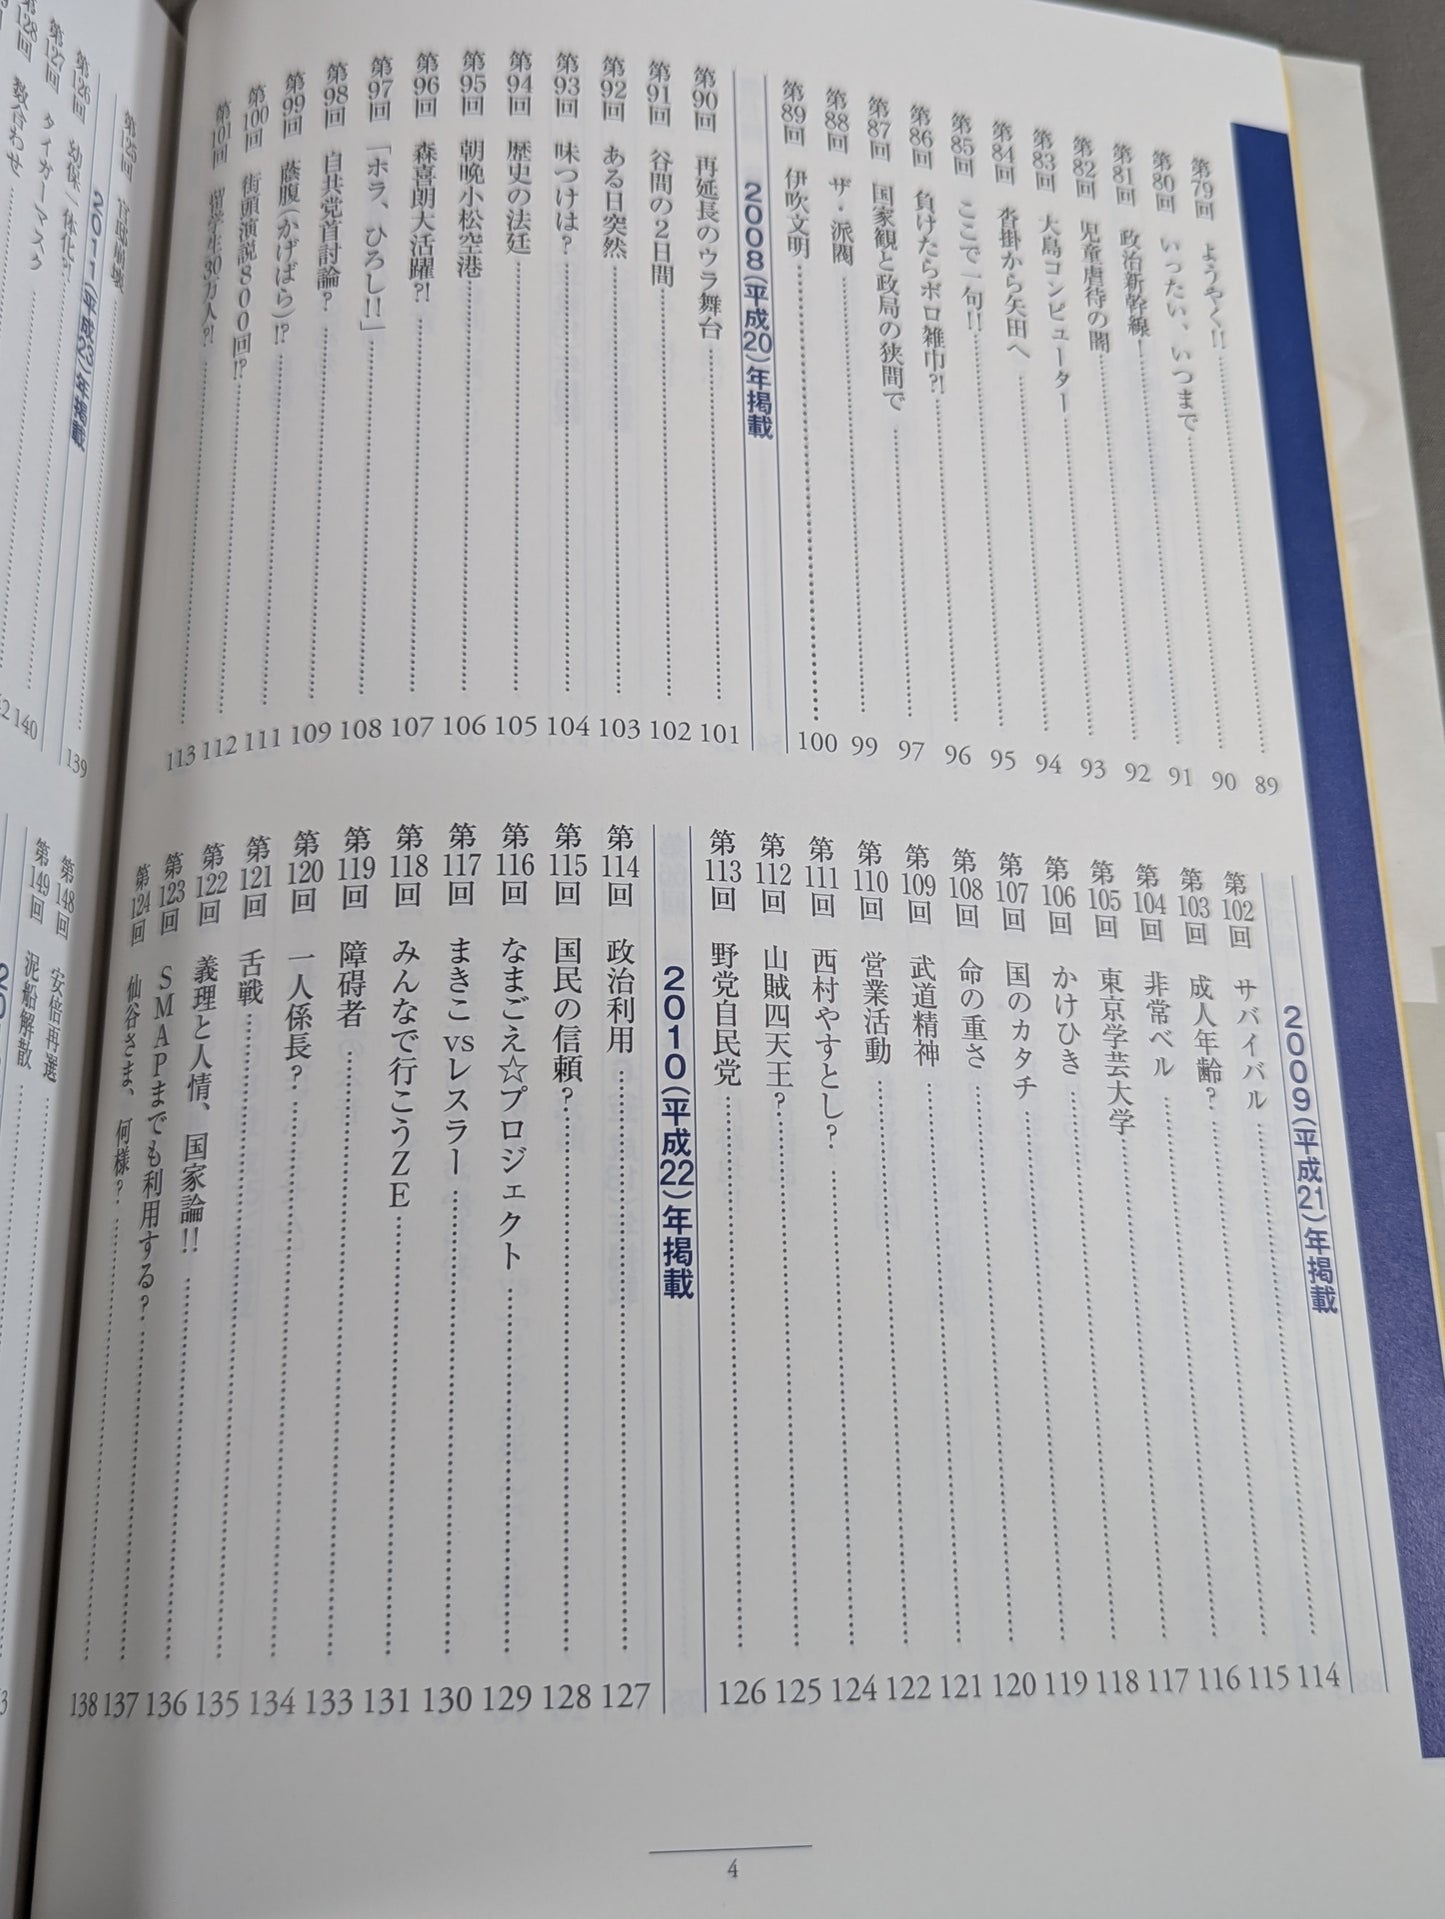 第79回 ようやく!! 89
第80回 いったい、いつまで 90
第81回 政治新幹線! 91
第82回 児童虐待の闇 92
第83回 大島コンピューター 93
第84回 沓掛から矢田へ 94
第85回 ここで一句!! 95
第86回 負けたらボロ雑巾?! 96
第87回 国家観と政局の狭間で 97
第88回 ザ・派閥 99
第89回 伊吹文明 100
2008(平成20)年掲載
第90回 再延長のウラ舞台 101
第91回 谷間の2日間 102
第92回 ある日突然 103
第93回 味つけは? 104
第94回 歴史の法廷 105
第95回 朝晩小松空港 106
第96回 森喜朗大活躍?! 107
第97回 「ホラ、ひろし!!」 108
第98回 自共党首討論? 109
第99回 蔭腹(かげばら)!? 111
第100回 街頭演説800回!? 112
第101回 留学生30万人?! 113
2009(平成21)年掲載
第102回 サバイバル 114
第103回 成人年齢? 115
第104回 非常ベル 116
第105回 東京学芸大学 117
第106回 かけひき 118
第107回 国のカタチ 119
第108回 命の重さ 120
第109回 武道精神 121
第110回 営業活動 122
第111回 西村やすとし? 124
第112回 山賊四天王? 125
第113回 野党自民党 126
2010(平成22)年掲載
第114回 政治利用 127
第115回 国民の信頼? 128
第116回 なまごえ☆プロジェクト 129
第117回 まきこvsレスラー 130
第118回 みんなで行こうZE 131
第119回 障碍者 133
第120回 一人係長? 134
第121回 舌戦 135
第122回 義理と人情、国家論!! 136
第123回 SMAPまでも利用する? 137
第124回 仙谷さま、何様? 138
4
第125回 官邸崩壊 139
2011(平成23)年掲載
第126回 幼保一体化?! 140
第127回 タイガーマスク
第128回 数合わせ
第148回 安倍再選
第149回 泥船解散